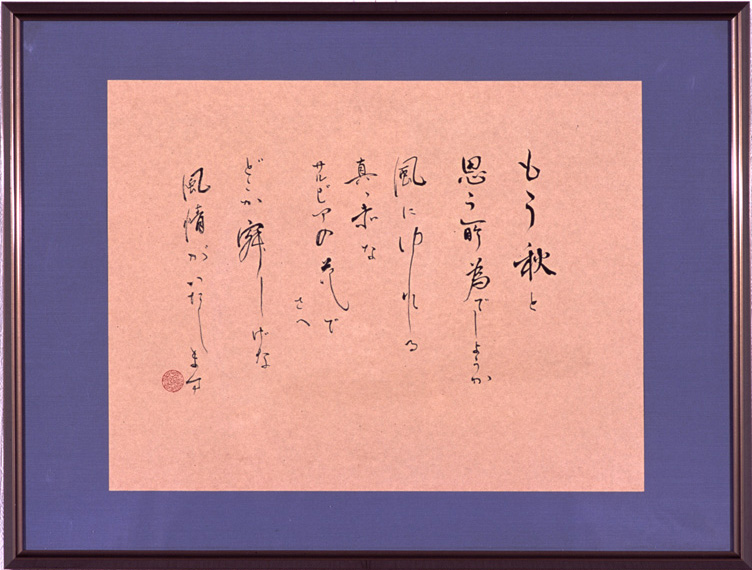 もう秋と
思う所為でしょうか
風にゆれる
真っ赤な
サルビアの花で
さへ
どこか寂しげな
風情がいたします